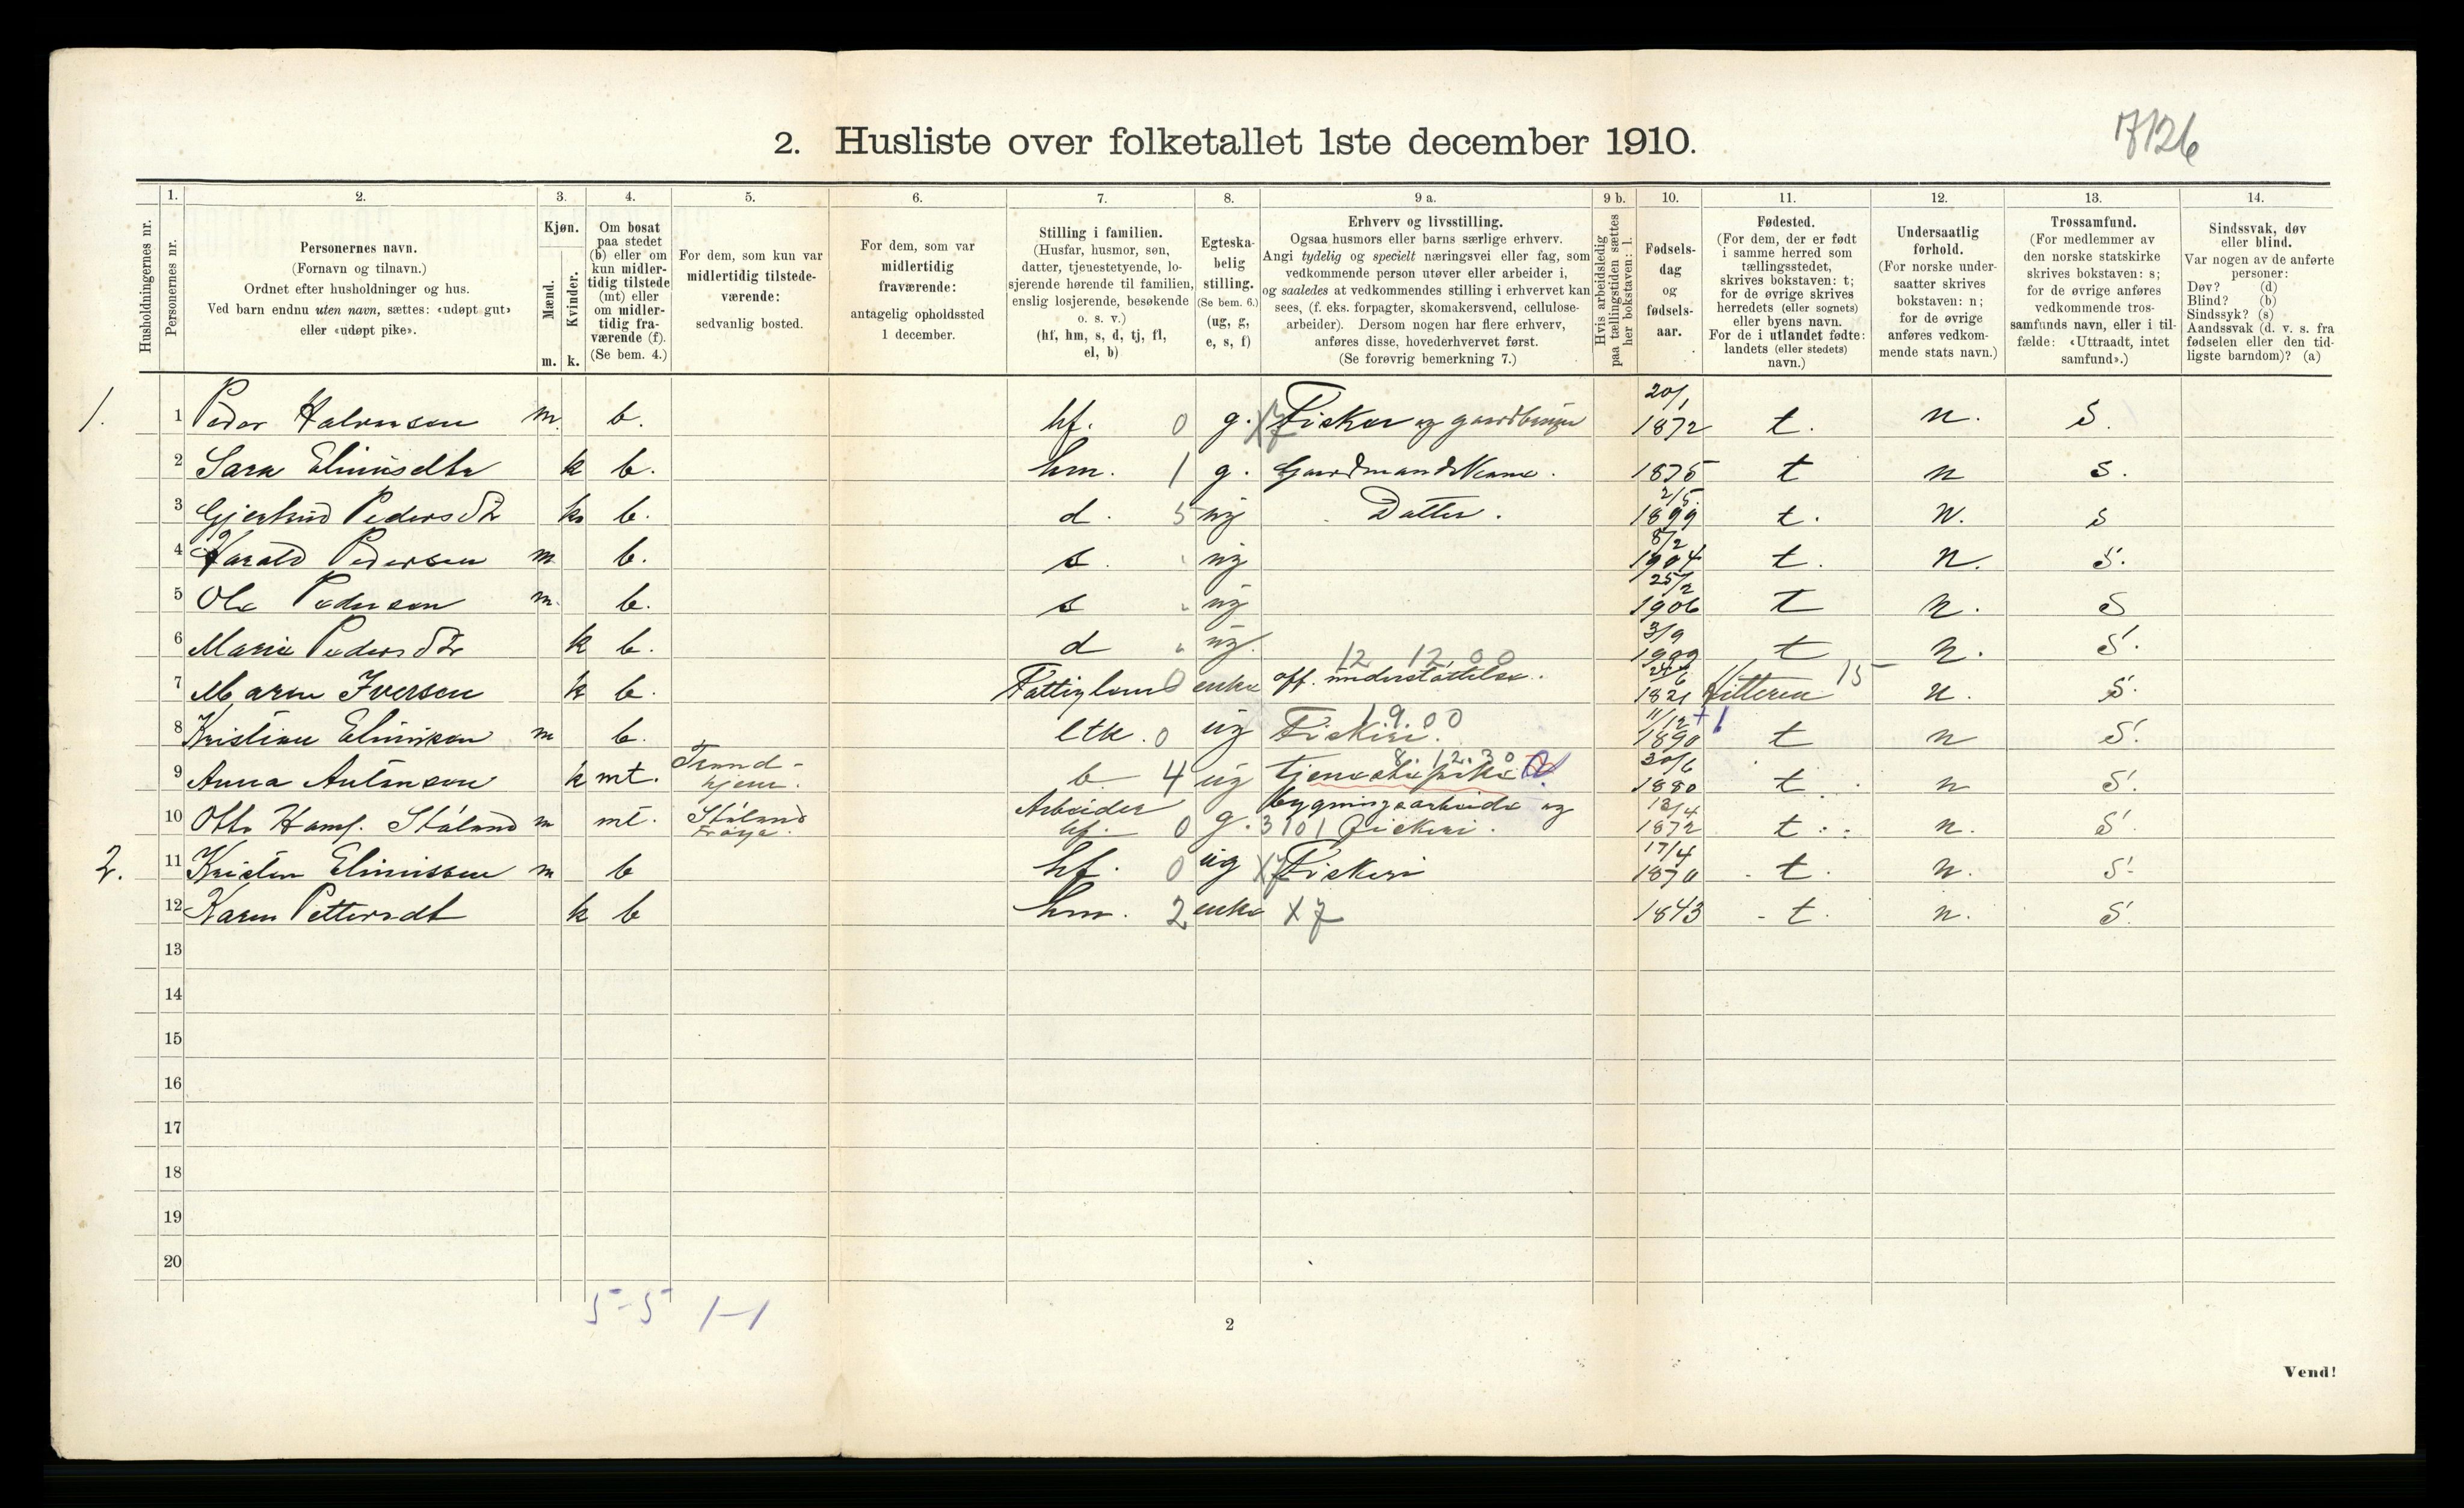 7126
2. Husliste over folketallet 1ste december 1910.
Husholdningernes nr.
1.
Personernes nr.
2.
Personernes navn.
(Fornavn og tilnavn.)
Ordnet efter husholdninger og hus.
Ved barn endnu uten navn, sættes: «udøpt gut»
eller «udøpt pike».
3.
Kjøn.
Mænd.
Kvinder.
m. k.
4.
Om bosat
paa stedet
(b) eller om
kun midler-
tidig tilstede
(mt) eller
om midler-
tidig fra-
værende (f).
(Se bem. 4.)
5.
For dem, som kun var
midlertidig tilstede-
værende:
sedvanlig bosted.
6.
For dem, som var
midlertidig
fraværende:
antagelig opholdssted
1 december.
7.
Stilling i familien.
(Husfar, husmor, søn,
datter, tjenestetyende, lo-
sjerende hørende til familien,
enslig losjerende, besøkende
o. s. v.)
(hf, hm, s, d, tj, fl,
el, b)
8.
Egteska-
belig
stilling.
(Se bem. 6.)
(ug, g,
e, s, f)
9 a.
Erhverv og livsstilling.
Ogsaa husmors eller barns særlige erhverv.
Angi tydelig og specielt næringsvei eller fag, som
vedkommende person utøver eller arbeider i,
og saaledes at vedkommendes stilling i erhvervet kan
sees, (f. eks. forpagter, skomakersvend, cellulose-
arbeider). Dersom nogen har flere erhverv,
anføres disse, hovederhvervet først.
(Se forøvrig bemerkning 7.)
9 b.
Hvis arbeidsledig
paa tællingstiden sættes
her bokstaven: l.
10.
Fødsels-
dag
og
fødsels-
aar.
11.
Fødested.
(For dem, der er født
i samme herred som
tællingsstedet,
skrives bokstaven: t;
for de øvrige skrives
herredets (eller sognets)
eller byens navn.
For de i utlandet fødte:
landets (eller stedets)
navn.)
12.
Undersaatlig
forhold.
(For norske under-
saatter skrives
bokstaven: n;
for de øvrige
anføres vedkom-
mende stats navn.)
13.
Trossamfund.
(For medlemmer av
den norske statskirke
skrives bokstaven: s;
for de øvrige anføres
vedkommende tros-
samfunds navn, eller i til-
fælde: «Uttraadt, intet
samfund».)
14.
Sindssvak, døv
eller blind.
Var nogen av de anførte
personer:
Døv? (d)
Blind? (b)
Sindssyk? (s)
Aandssvak (d. v. s. fra
fødselen eller den tid-
ligste barndom)? (a)
1. 1 Peder Halvorsen m b. hf. 0 g. X7 Fisker og gaardbruger 20/1 1872 t. n. S.
2 Sara Elimisdtr k b. hm. 1 g. Gaardmands Kone. 1875 t n s.
3 Gjertrud Pedersdtr k b. d. 5 ug Datter. 2/5 1899 t. n. s
4 Harald Pedersen m b. s. ug 8/2 1904 t. n. S.
5 Ole Pedersen m. b. s ug 25/2 1906 t n. S
6 Marie Pedersdtr k b. d ug. 3/9 1909 t n. S.
12 12 00
7 Maren Iversen k b. Fattiglem 0 enke off. understøttelse. 24/6 1821 Hitteren 15 n. S.
1 9. 00
8 Kristian Elimsen m b. ltk. 0 ug Fiskeri. 11/12 1890 +1 t n S.
8. 12. 30
9 Anna Antonsen k mt. Trond-
hjem. b 4 ug tjenestepike 30/6 1880 t. n S.
10 Otto Hamf. Støland m mt. Støland
Frøya. Arbeider
hf. 0 g. bygningsarbeide og
3101 Fiskeri. 13/4 1872 t. n. S.
2. 11 Kristen Elimissen m b hf. 0 ug X7 Fiskeri 17/4 1870 t. n. S.
12 Karen Pettersdt k b hm. 2 enke X 7 1843 t. n. S.
13
14
15
16
17
18
19
20
5-5 1-1
2
Vend!